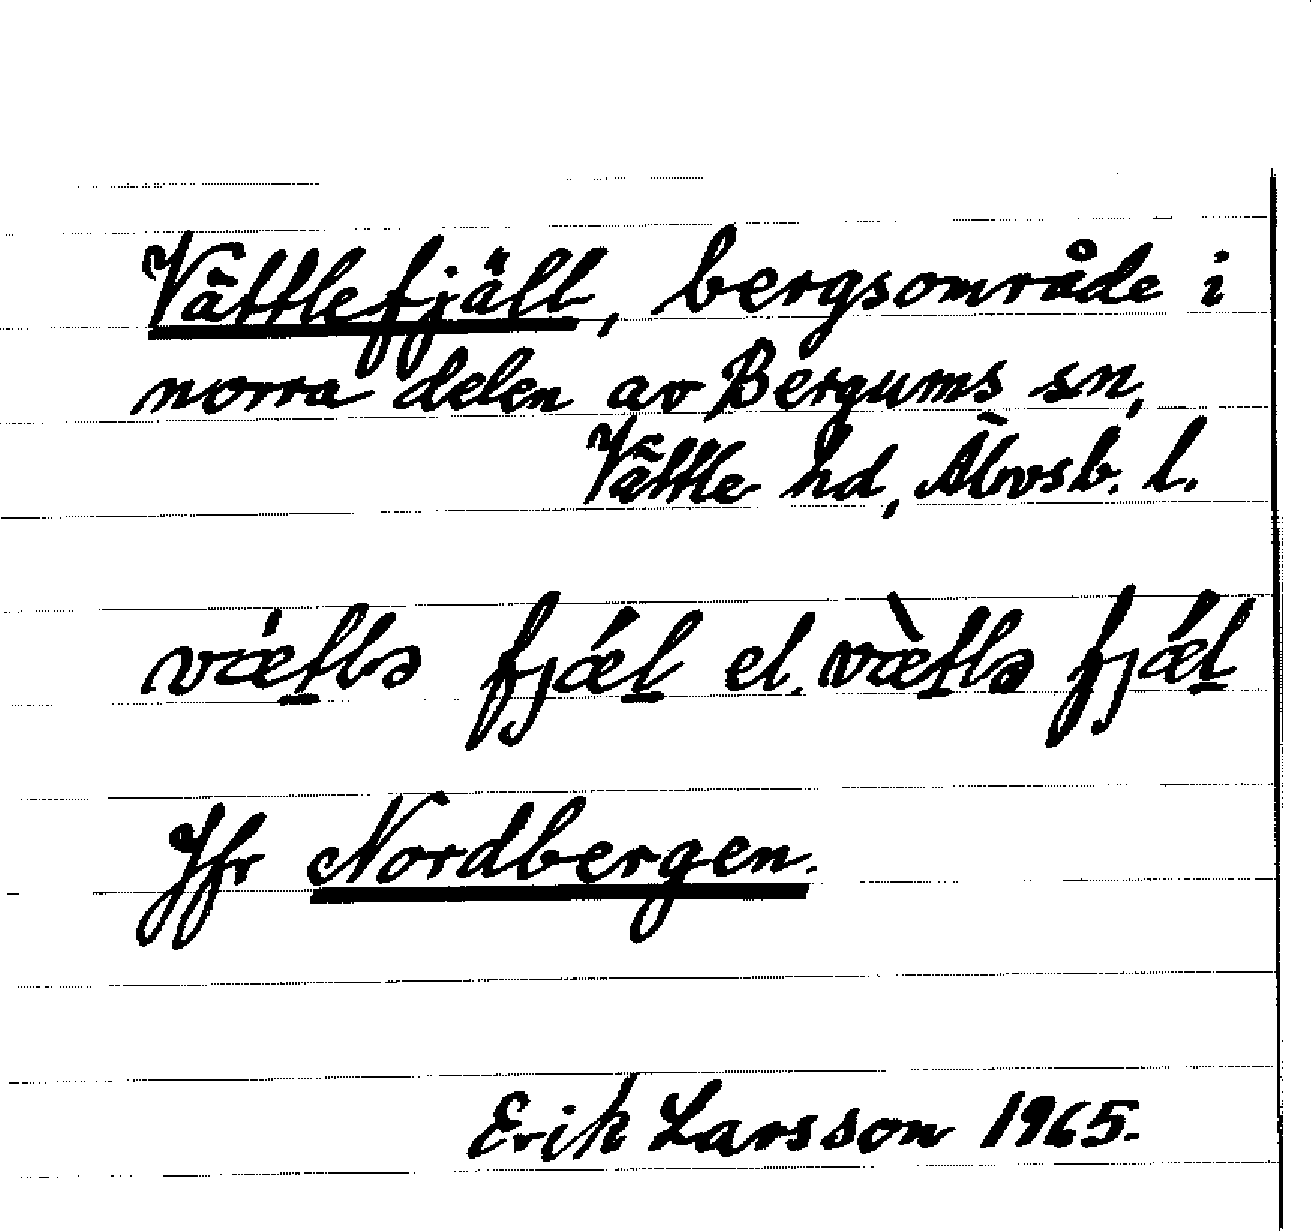 Vättlefjäll, bergsområde i
norra delen av Bergums sn,
Vättle hd, Älvsb. l.
væ̍t̲lə fjæ̍l̲ el. væ̀t̲lə fjæ̍l̲
Jfr Nordbergen.
Erik Larsson 1965.